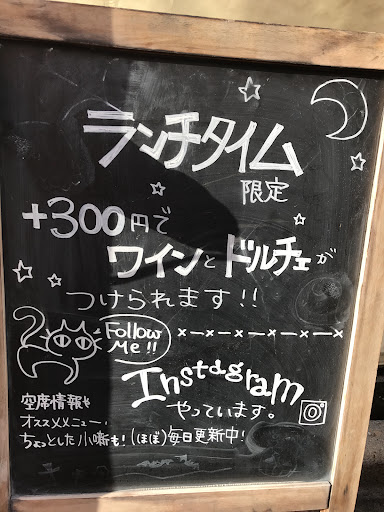 ランチタイム
限定
+300円で
ワインとドルチェが
つけられます!!
Follow
Me!!
Instagram
やっています。
空席情報や
オススメメニュー、
ちょっとした小噺も!(ほぼ)毎日更新中!